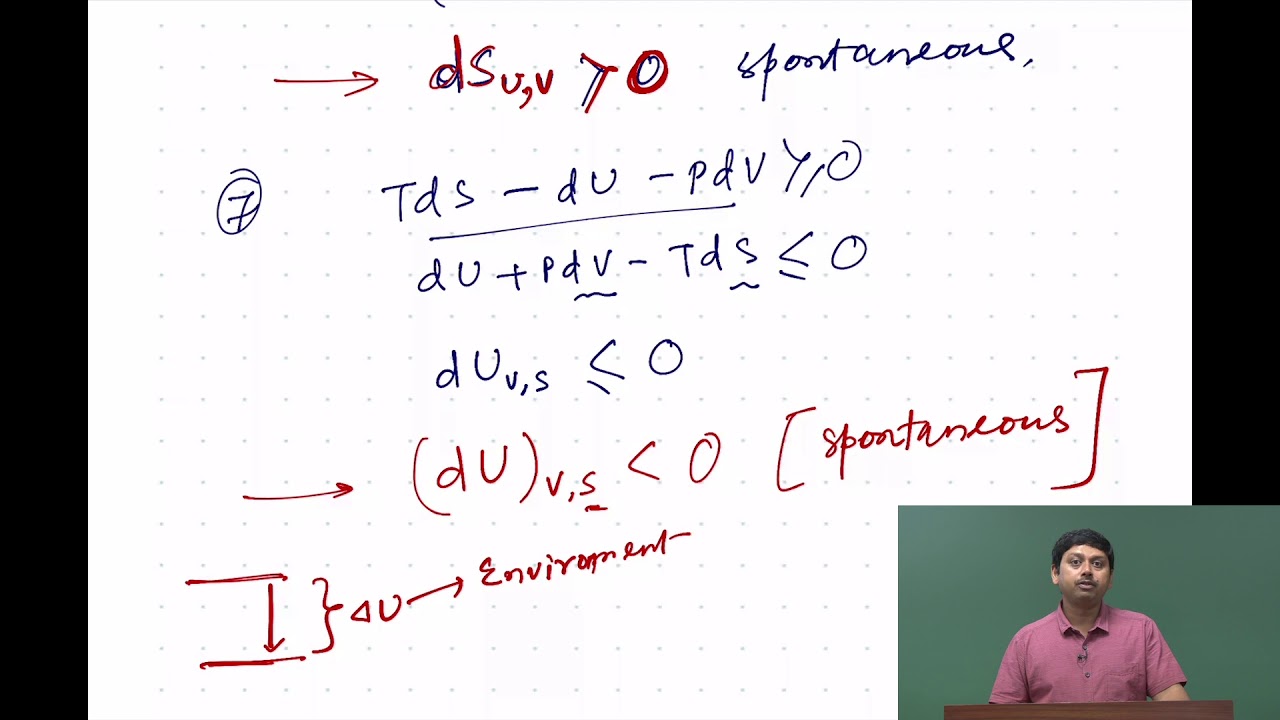 → dS_{U,V} > 0 spontaneous.
⑦ TdS - dU - PdV ≥ 0
dU + PdV - TdS ≤ 0
dU_{V,S} ≤ 0
→ (dU)_{V,S} < 0 [spontaneous]
} ΔU → Enviroment